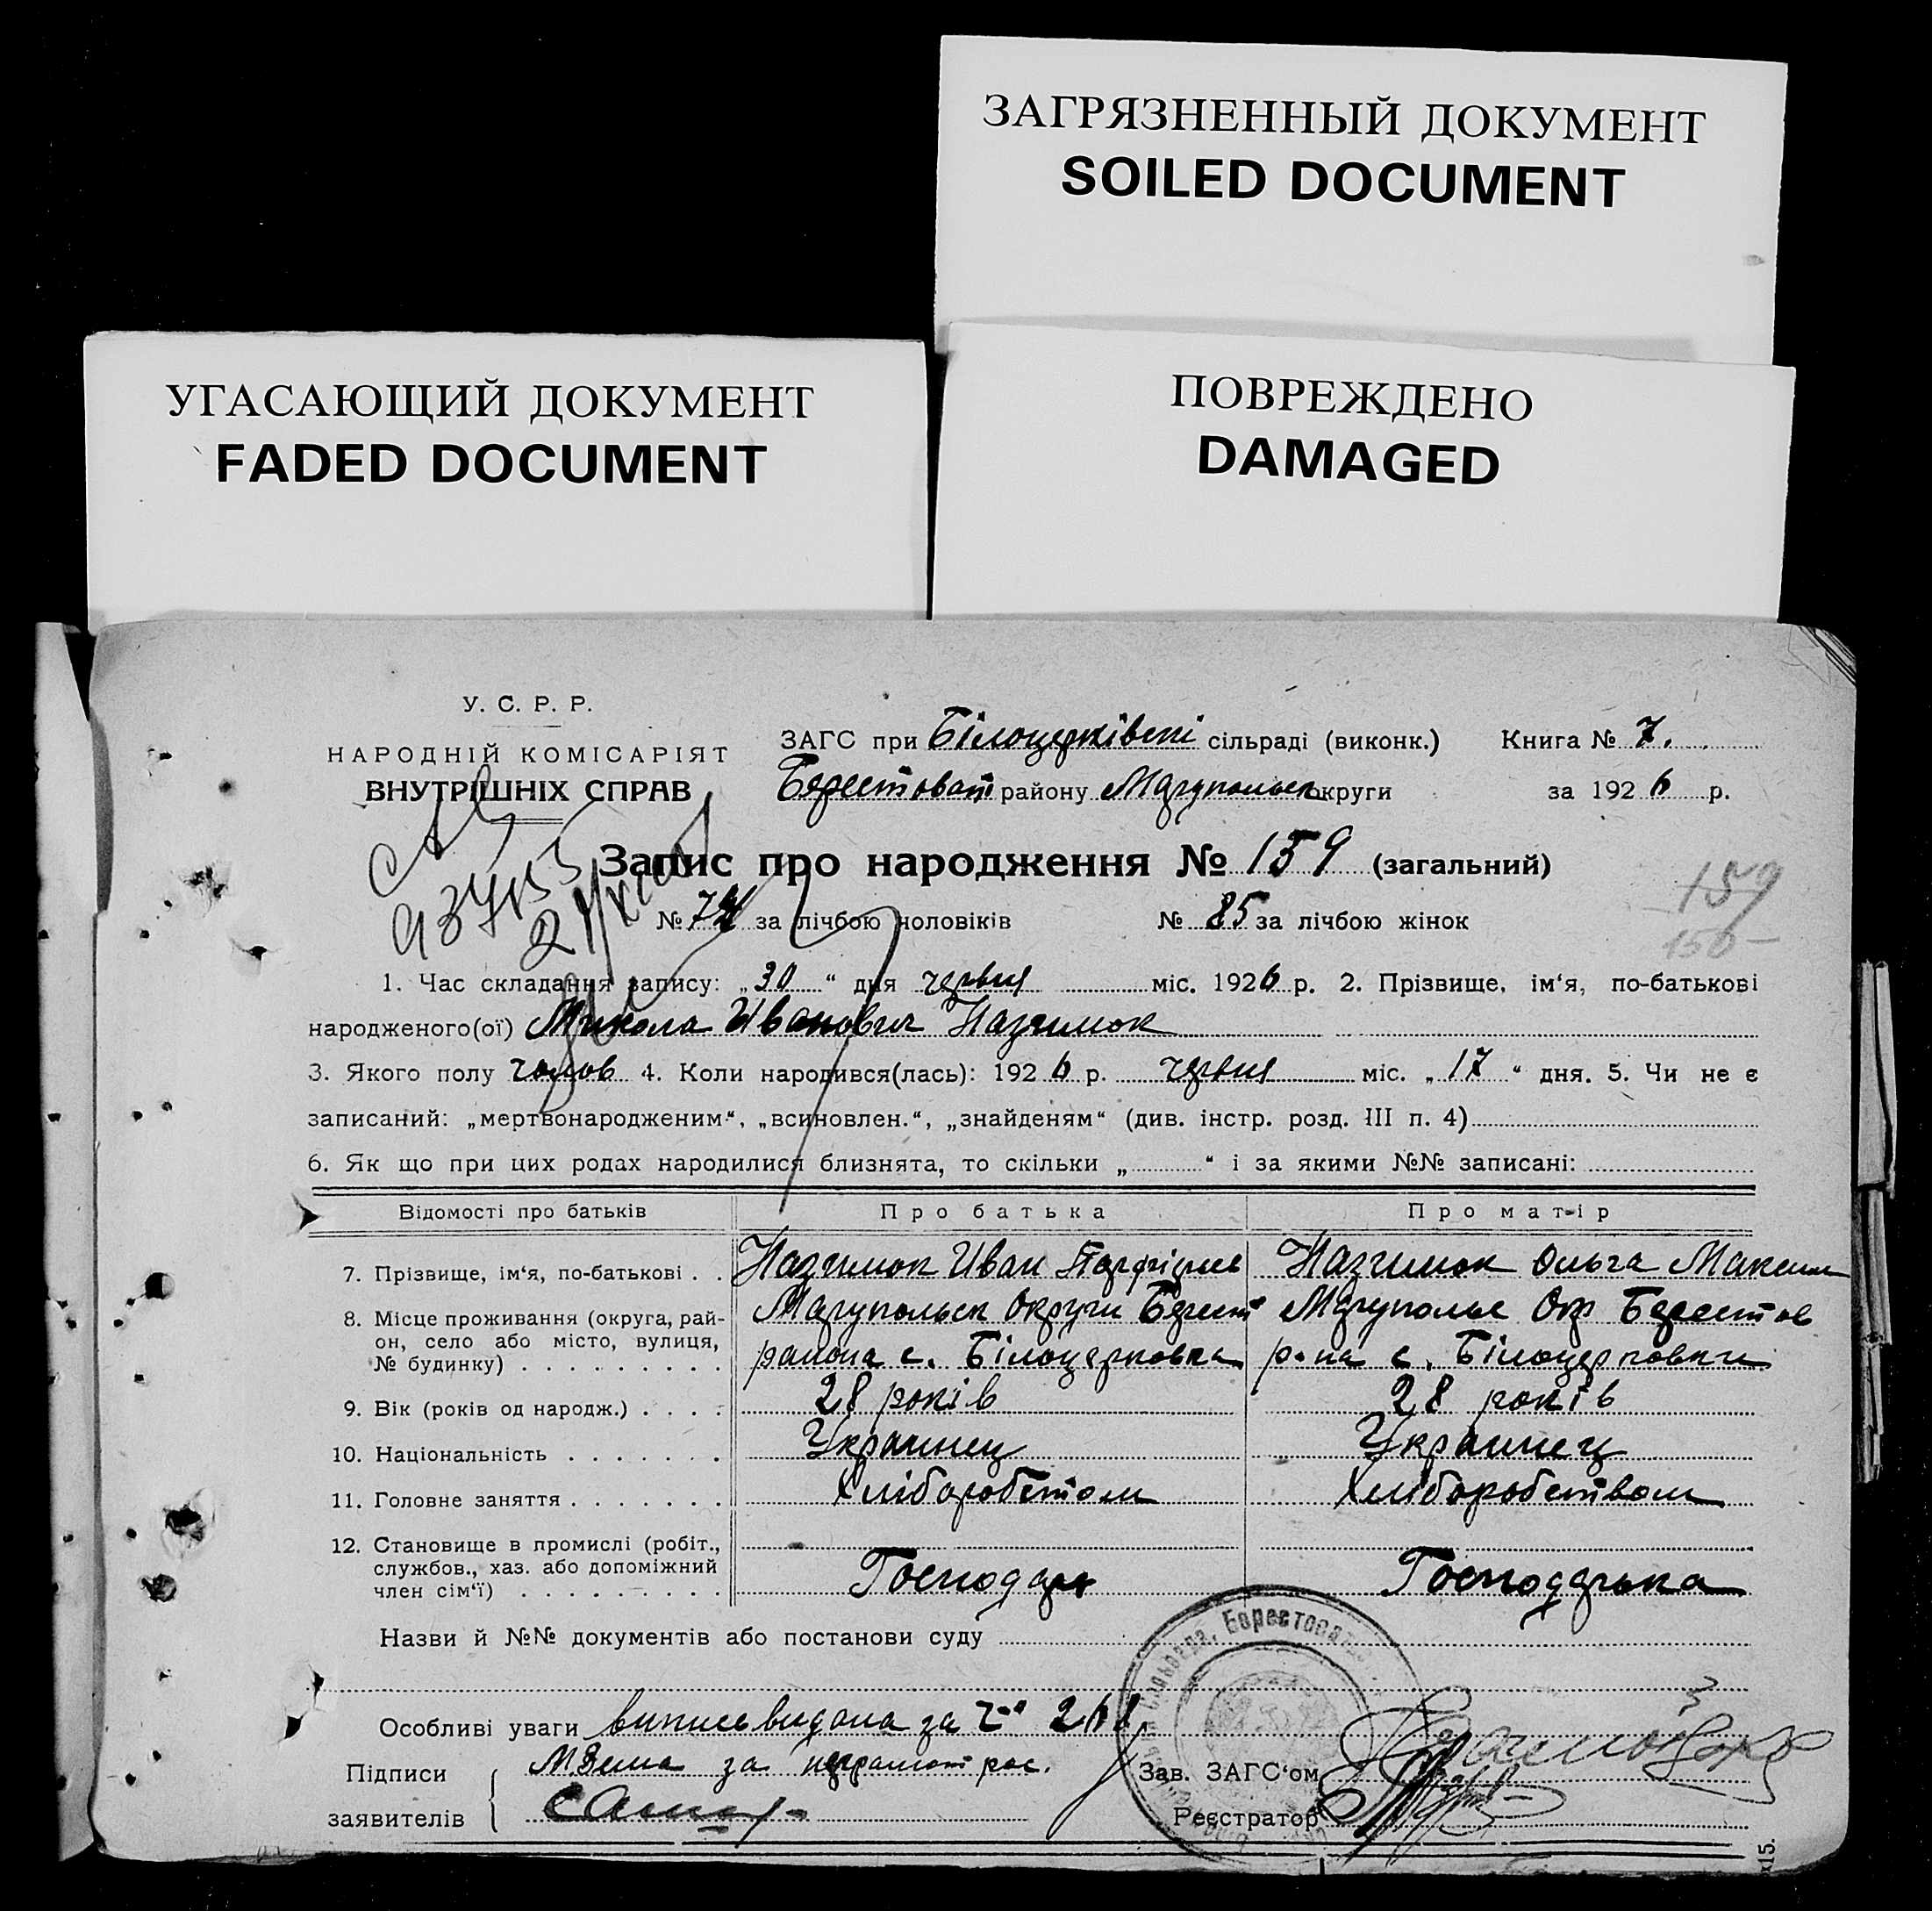 ЗАГРЯЗНЕННЫЙ ДОКУМЕНТ
SOILED DOCUMENT
УГАСАЮЩИЙ ДОКУМЕНТ
FADED DOCUMENT
ПОВРЕЖДЕНО
DAMAGED
У. С. Р. Р.
НАРОДНІЙ КОМІСАРІЯТ
ВНУТРІШНІХ СПРАВ
ЗАГС при Білоцерківскі сільраді (виконк.) Книга № 7.
Берестоват району Маріупольск округи за 1926 р.
Запис про народження № 159 (загальний)
159
150
№ 74 за лічбою чоловіків № 85 за лічбою жінок
1. Час складання запису: „30“ дня червня міс. 1926 р. 2. Прізвище, ім‘я, по-батькові
народженого(ої) Микола Иванович
3. Якого полу чолов 4. Коли народився(лась): 1926 р. червня міс. „17“ дня. 5. Чи не є
записаний: „мертвонародженим“, „всиновлен.“, „знайденям“ (див. інстр. розд. III п. 4)
6. Як що при цих родах народилися близнята, то скільки „ “ і за якими №№ записані:
Відомості про батьків Про батька Про матір
7. Прізвище, ім‘я, по-батькові . . Иван Ольга Максим
8. Місце проживання (округа, рай-
он, село або місто, вулиця,
№ будинку) . . . . . . . . .
Маріупольск Округи Берест Маріупольс Окр Берестов
района с. Білоцерковка р-на с. Білоцерковки
9. Вік (років од народж.) . . . . 28 років 28 років
10. Національність . . . . . . . Украинец Украинец
11. Головне заняття . . . . . . . Хліборобстом Хліборобством
12. Становище в промислі (робіт.,
службов., хаз. або допоміжний
член сім‘ї) . . . . . . . . . Господар Господарька
Назви й №№ документів або постанови суду
Особливі уваги випись видана за
Підписи за
заявителів
Зав. ЗАГС‘ом
Реєстратор